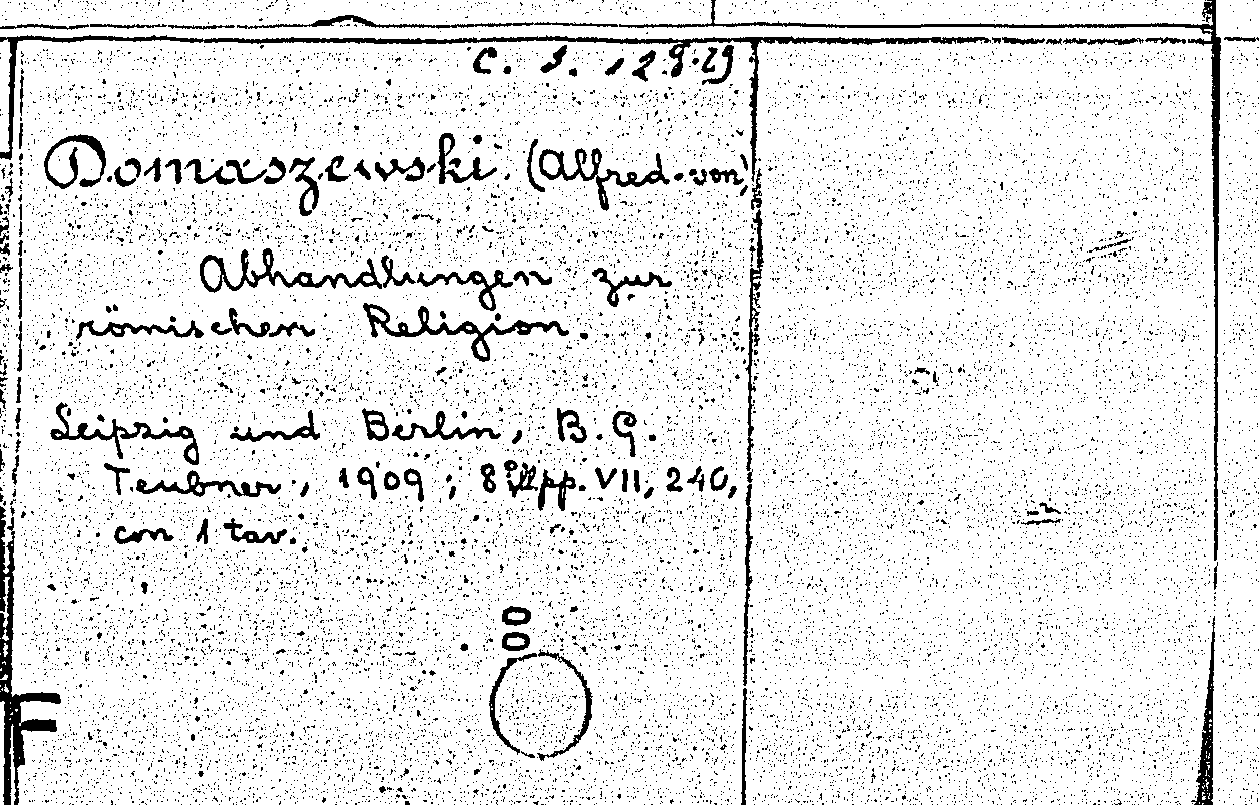 C. 1. 12.8.29
Domaszewski. (Alfred-von)
Abhandlungen zur
römischen Religion.
Leipzig und Berlin, B. G.
Teubner, 1909; 8º, pp. VII, 240,
con 1 tav.
00
F